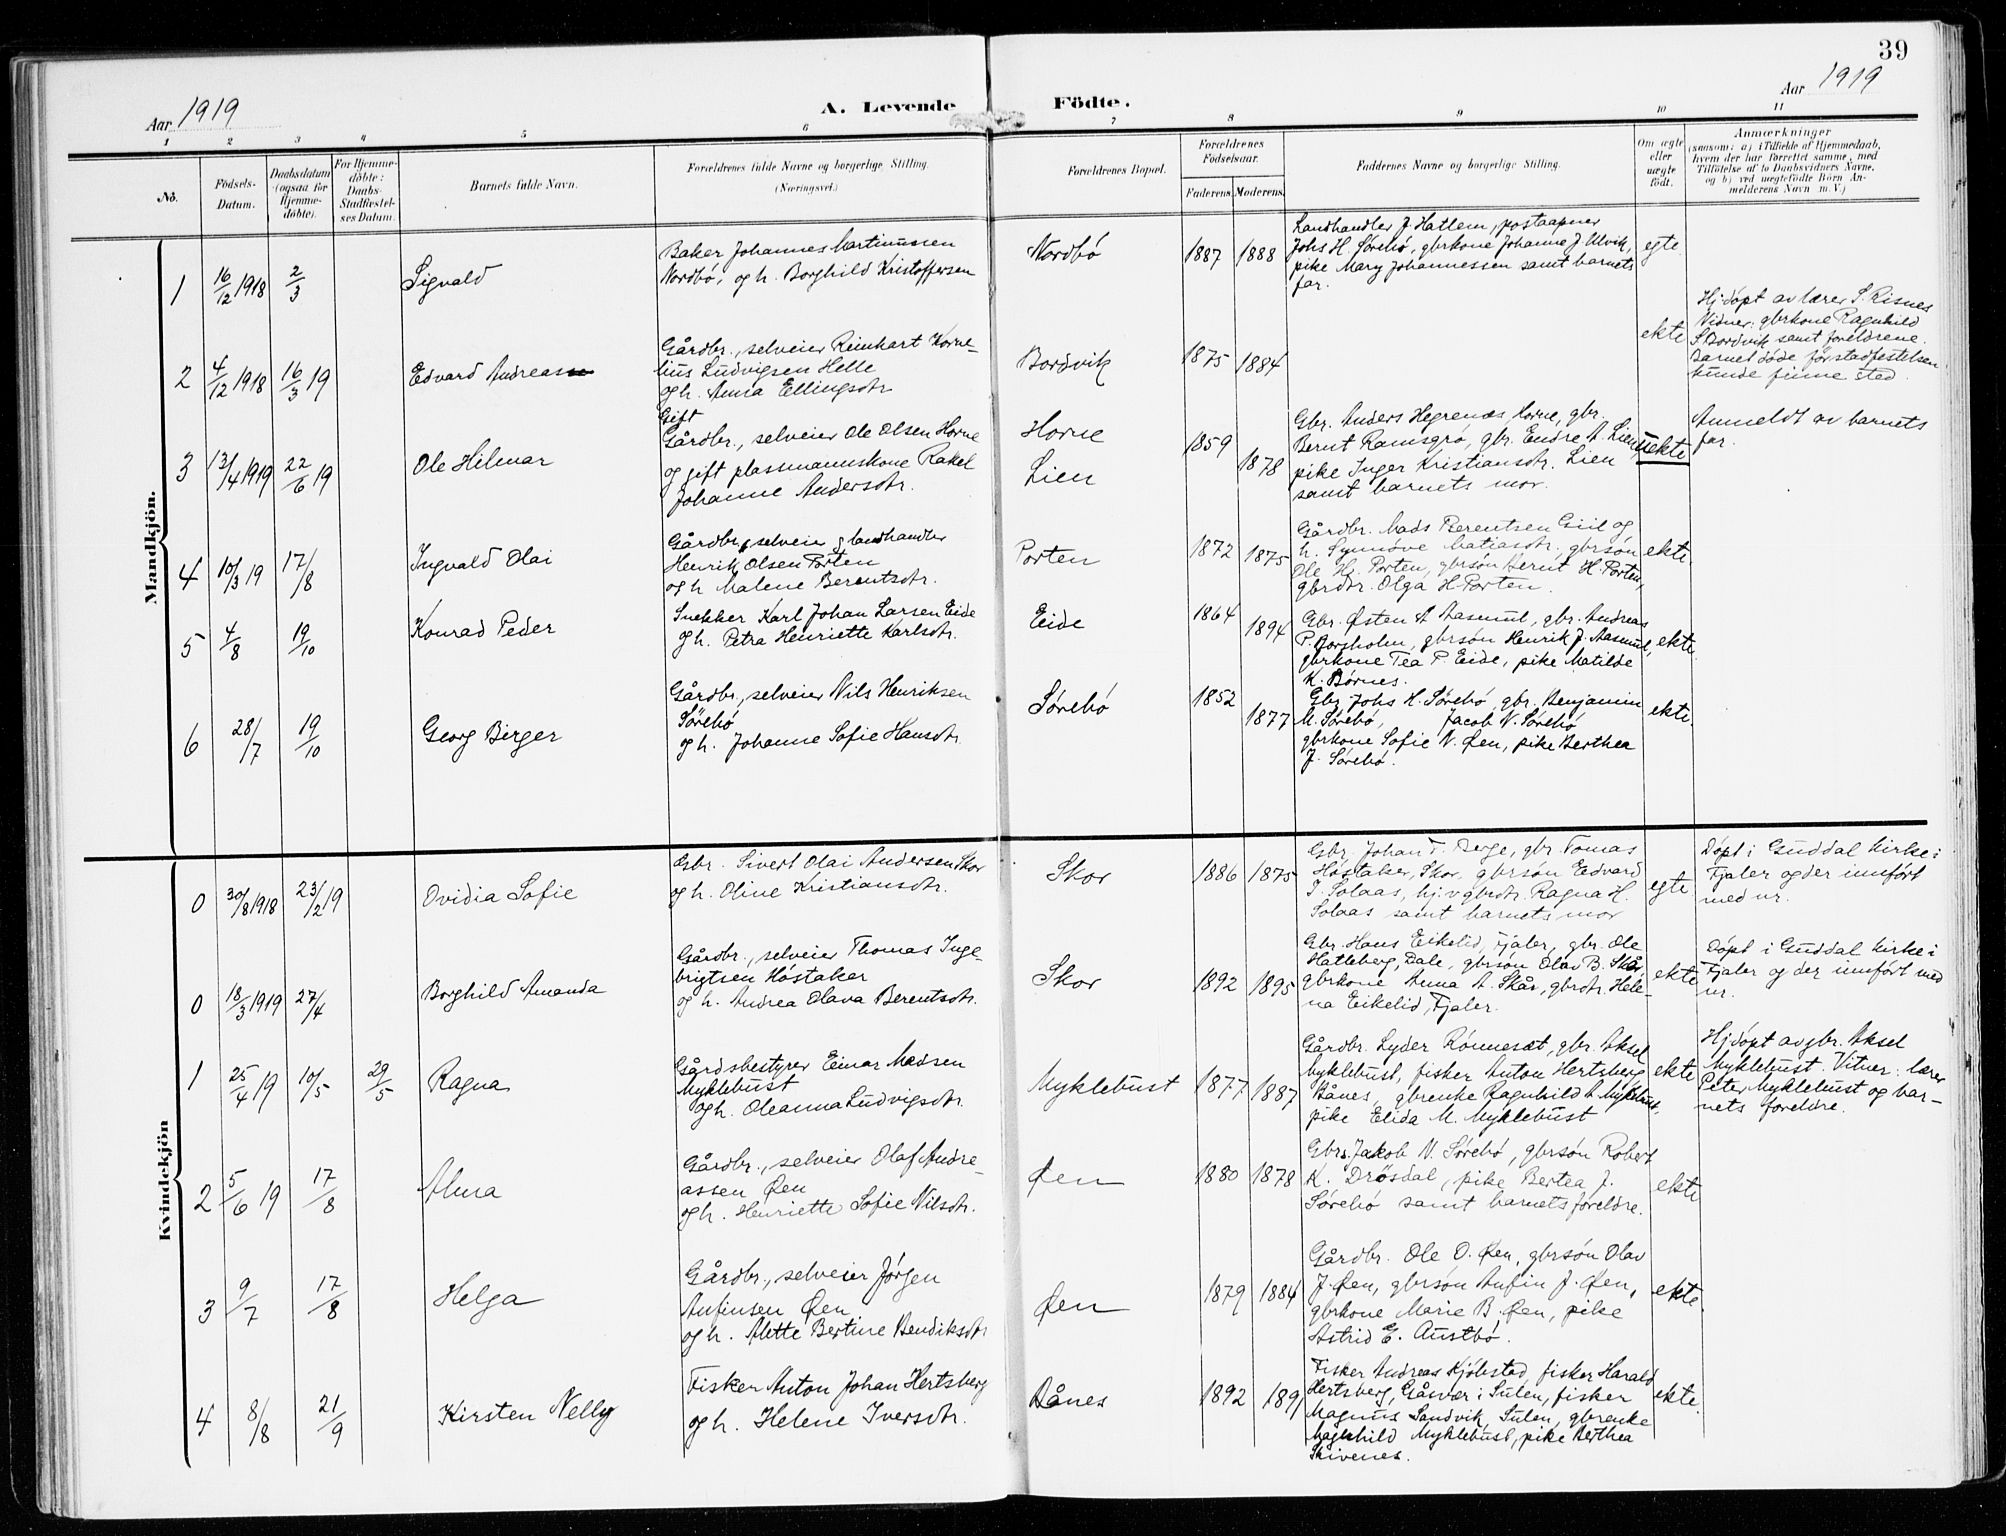 39
Aar 1919
A. Levende Födte.
Aar 1919
1 2 3 4 5 6 7 8 9 10 11
No.
Födsels-Datum.
Daabsdatum (ogsaa for Hjemme-döbte).
For Hjemme-döbte: Daabs-Stadfæstel-ses Datum.
Barnets fulde Navn.
Forældrenes fulde Navne og borgerlige Stilling.
(Næringsvei.)
Forældrenes Bopæl.
Forældrenes Födselsaar.
Faderens. Moderens.
Faddernes Navne og borgerlige Stilling.
Om ægte eller uægte födt.
Anmærkninger
(saasom: a) i Tilfælde af Hjemmedaab,
hvem der har forrettet samme, med
Tilföielse af to Daabsvidners Navne,
og b) ved uægtefödte Börn An-
melderens Navn m. V.)
Mandkjön.
1 16/12 1918 2/3 Sigvald
Baker Johannes Martinussen
Nordbó, og h. Borghild Kristoffersen
Nordbó 1887 1888
Landhandler J. Hatlem, postaapner
Johs H. Sørebó, gbrkone Johanne J. Ulvik,
pike Mary Johannessen samt barnets
far.
egte
2 4/12 1918 16/3 19 Edvard Andreas
Gårdbr., selveier Reinhart Korne-
lius Ludvigsen Helle
og h. Anna Ellingsdtr.
Bordvik 1875 1884
ekte
Hj.døpt av lærer S. Risnes
Vidner: gbrkone Ragnhild
S. Bordvik samt foreldrene.
Barnet døde før stadfestelsen
kunde finne sted.
3 13/4 1919 22/6 19 Ole Hilmar
Gift
Gårdbr., selveier Ole Olsen Horne
og gift plassmannskone Rakel
Johanne Andersdtr.
Horne
Lien
1859 1878
Gbr. Anders Hegrenæs Horne, gbr.
Bernt Ramsgrø, gbr. Endre A. Lien,
pike Inger Kristiansdtr. Lien
samt barnets mor.
uekte
Anmeldt av barnets
far.
4 10/3 19 17/8 Ingvald Olai
Gårdbr., selveier g landhandler
Henrik Olsen Porten
og h Malene Berentsdtr.
Porten 1872 1875
Gårdbr. Mads Berentsen Giil og
h. Synnøve Matiasdtr., gbrsøn
Ole H. Porten, gbrsøn Bernt H. Porten,
gbrdtr. Olga H Porten.
ekte
5 4/8 19/10 Konrad Peder
Snekker Karl Johan Larsen Eide
og h. Petra Henriette Karlsdtr.
Eide 1864 1894
Gbr. Østen A Aasmul, gbr. Andreas
P. Borgholm, gbrsøn Henrik J. Aasmul,
gbrkone Tea P. Eide, pike Matilde
K. Børnes.
ekte
6 28/7 19/10 Georg Birger
Gårdbr., selveier Nils Henriksen
Sörebó
og h. Johanne Sofie Hansdtr.
Sørebó 1852 1877
Gbr Johs H. Sørebó, gbr. Benjamin
M. Sørebó, Jacob N. Sørebó,
gbrkone Sofie N. Øen, pike Berthea
J. Sørebó.
ekte
Kvindekjön
0 30/8 1918 23/2 19 Ovidia Sofie
Gbr. Sivert Olai Andersen Skor
og h. Oline Kristiansdtr.
Skor 1886 1875
Gbr. Johan T. Berge, gbr Tomas
Høstaker, Skor, gbrsøn Edvard
I. Solaas, hj.v gbrdtr. Ragna H.
Solaas samt barnets mor
egte
Døpt i Guddal kirke i
Fjaler og der innført
med nr.
0 18/3 1919 27/4 Borghild Amanda
Gårdbr., selveier Thomas Inge-
brigtsen Høstaker
og h. Andrea Olava Berentsdtr.
Skor 1892 1895
Gbr. Hans Eikelid, Fjaler, gbr. Ole
Hatleberg, Dale, gbrsøn Olav B. Skår,
gbrkone Anna A. Skår, gbrdtr. Hele-
na Eikelid, Fjaler.
ekte
Døpt i Guddal kirke i
Fjaler og der innført med
nr.
1 25/4 19 10/5 29/5 Ragna
Gårdsbestyrer Einar Madsen
Myklebust
og h. Oleanna Ludvigsdtr.
Myklebust 1877 1887
Gårdbr. Lyder Rønneset, gbr. Aksel
Myklebust, fisker Anton Hertsberg
Bånes, gbrenke Ragnhild A. Myklebust,
pike Elida M. Myklebust
ekte
Hjdøpt av gbr. Aksel
Myklebust. Vitner: lærer
Peter Myklebust og bar-
nets foreldre.
2 5/6 19 17/8 Alma
Gårdbr., selveier Olaf Andre-
assen Øen
og h. Henriette Sofie Nilsdtr.
Øen 1880 1878
Gbr. Jakob N. Sørebó, gbrsøn Robert
K. Drøsdal, pike Bertea J.
Sørebó samt barnets foreldre.
ekte
3 9/7 17/8 Helga
Gårdbr., selveier Jørgen
Anfinsen Øen
og h. Alette Bertine Bendiksdtr
Øen 1879 1884
Gårdbr. Ole O. Øen, gbrsøn Olav
J. Øen, gbrsøn Anfin J. Øen,
gbrkone Marie B. Øen, pike
Astrid E. Austbó.
ekte
4 8/8 21/9 Kirsten Nelly
Fisker Anton Johan Hertsberg
og h. Helene Iversdtr.
Bånes 1892 1891
Fisker Andreas Kjøbstad, fisker Harald
Hertsberg, Gåsvær i Sulen, fisker
Magnus Sandvik, Sulen, gbrenke
Ragnhild Myklebust, pike Berthea
Skivenes.
ekte